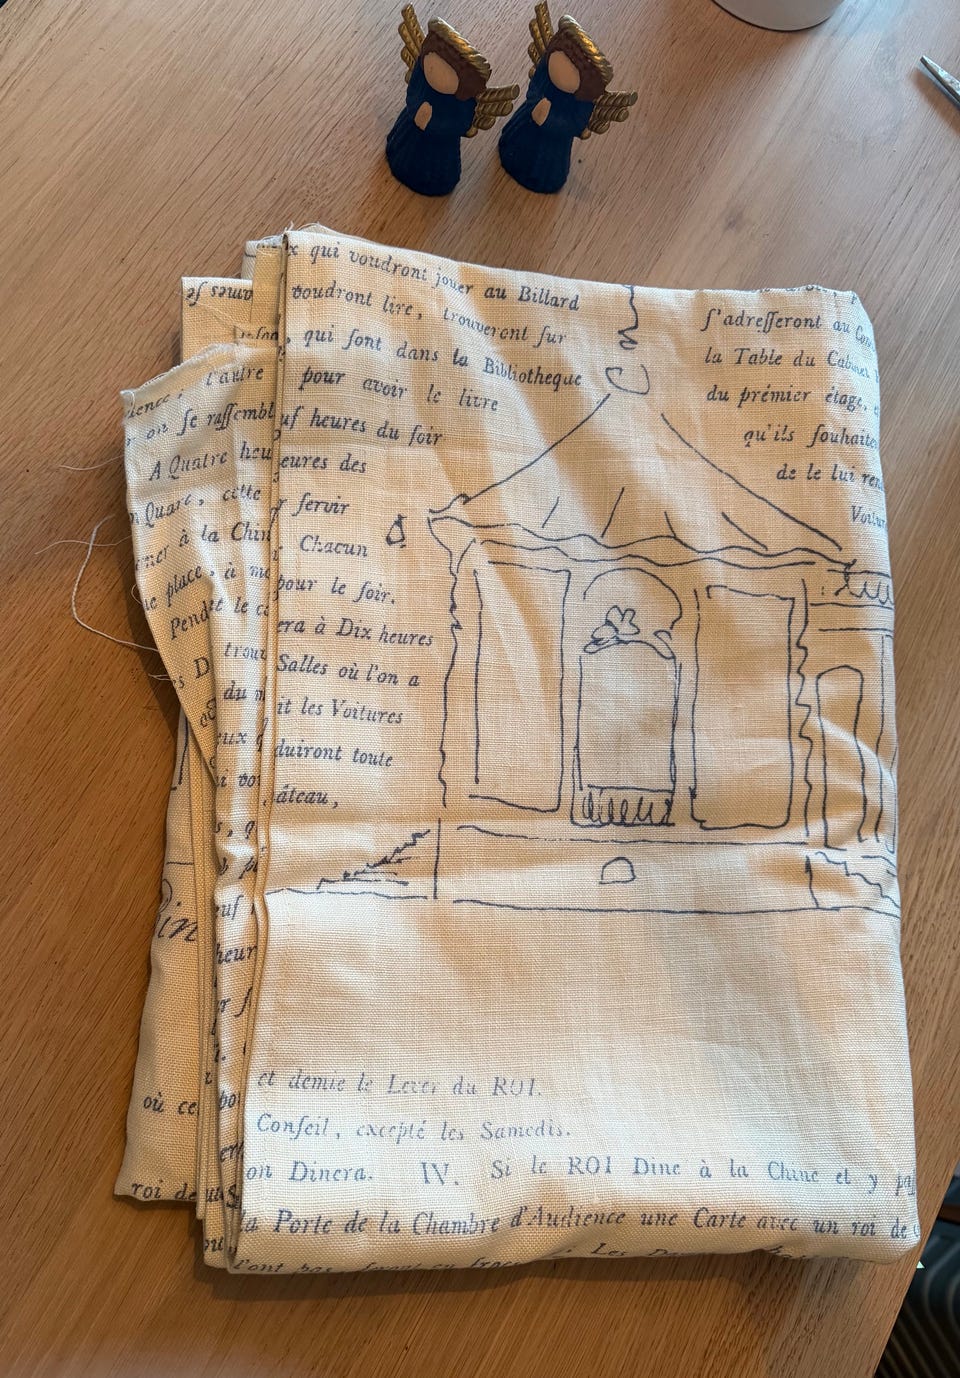 x qui voudront jouer au Billard
voudront lire, trouveront ſur
, qui ſont dans la Bibliotheque
pour avoir le livre
uf heures du ſoir
eures des
r ſervir
Chacun
pour le ſoir.
era à Dix heures
Salles où l'on a
it les Voitures
duiront toute
âteau,
ſ'adreſſeront au
la Table du Cabinet
du prémier étage,
qu'ils ſouhaite
de le lui ren
Voitur
l'autre
on ſe raſſembl
A Quatre heu
Quart, cette
ner à la Chin
place, à
Pend
trou
du m
eux q
uf
heur
où ce
roi de
et demie le Lever du ROI.
Conſeil, excepté les Samedis.
on Dinera. IV. Si le ROI Dine à la Chine et y pa
la Porte de la Chambre d'Audience une Carte avec un roi de
l'ont pas